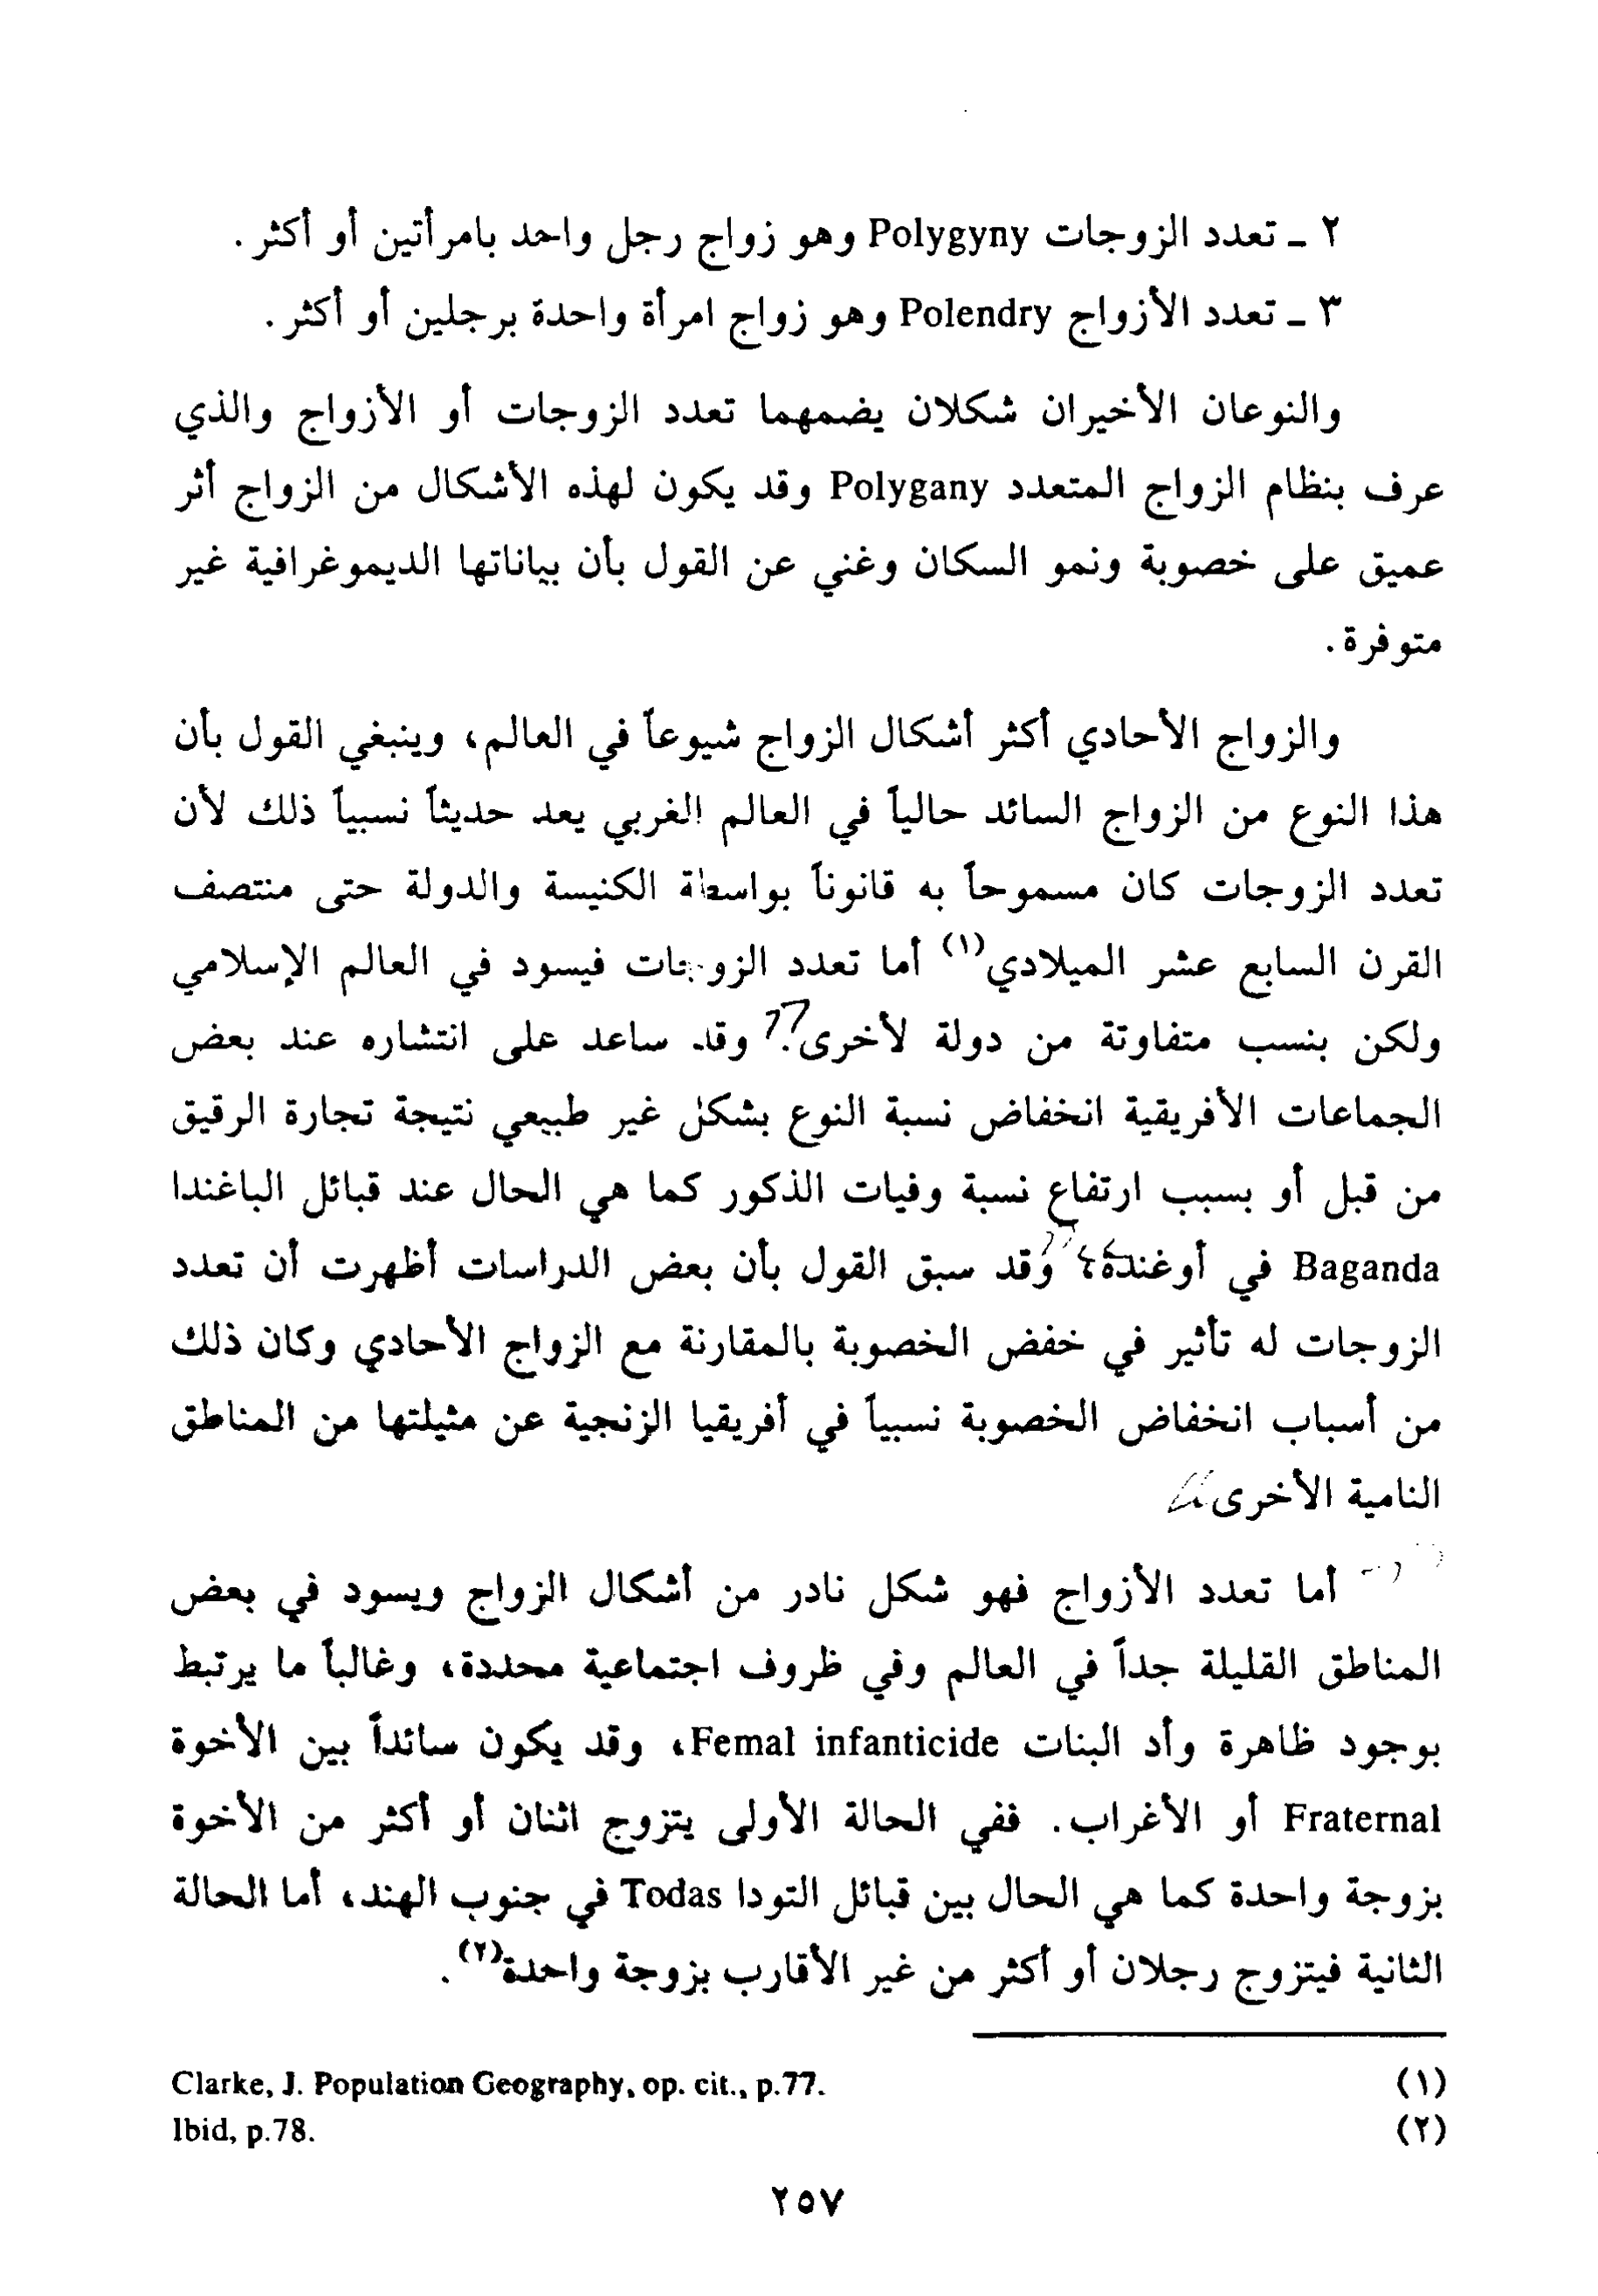 ٢ ـ تعدد الزوجات Polygyny وهو زواج رجل واحد بامرأتين أو أكثر.
٣ ـ تعدد الأزواج Polendry وهو زواج امرأة واحدة برجلين أو أكثر.
والنوعان الأخيران شكلان يضمهما تعدد الزوجات أو الأزواج والذي
عرف بنظام الزواج المتعدد Polygany وقد يكون لهذه الأشكال من الزواج أثر
عميق على خصوبة ونمو السكان وغني عن القول بأن بياناتها الديموغرافية غير
متوفرة.
والزواج الأحادي أكثر أشكال الزواج شيوعاً في العالم، وينبغي القول بأن
هذا النوع من الزواج السائد حالياً في العالم الغربي يعد حديثاً نسبياً ذلك لأن
تعدد الزوجات كان مسموحاً به قانوناً بواسطة الكنيسة والدولة حتى منتصف
القرن السابع عشر الميلادي(١) أما تعدد الزوجات فيسود في العالم الإسلامي
ولكن بنسب متفاوتة من دولة لأخرى. وقد ساعد على انتشاره عند بعض
الجماعات الأفريقية انخفاض نسبة النوع بشكل غير طبيعي نتيجة تجارة الرقيق
من قبل أو بسبب ارتفاع نسبة وفيات الذكور كما هي الحال عند قبائل الباغندا
Baganda في أوغندة، وقد سبق القول بأن بعض الدراسات أظهرت أن تعدد
الزوجات له تأثير في خفض الخصوبة بالمقارنة مع الزواج الأحادي وكان ذلك
من أسباب انخفاض الخصوبة نسبياً في أفريقيا الزنجية عن مثيلتها من المناطق
النامية الأخرى.
أما تعدد الأزواج فهو شكل نادر من أشكال الزواج ويسود في بعض
المناطق القليلة جداً في العالم وفي ظروف اجتماعية محددة، وغالباً ما يرتبط
بوجود ظاهرة وأد البنات Femal infanticide، وقد يكون سائداً بين الأخوة
Fraternal أو الأغراب. ففي الحالة الأولى يتزوج اثنان أو أكثر من الأخوة
بزوجة واحدة كما هي الحال بين قبائل التودا Todas في جنوب الهند، أما الحالة
الثانية فيتزوج رجلان أو أكثر من غير الأقارب بزوجة واحدة(٢).
(١) Clarke, J. Population Geography, op. cit., p.77.
(٢) Ibid, p.78.
٢٥٧